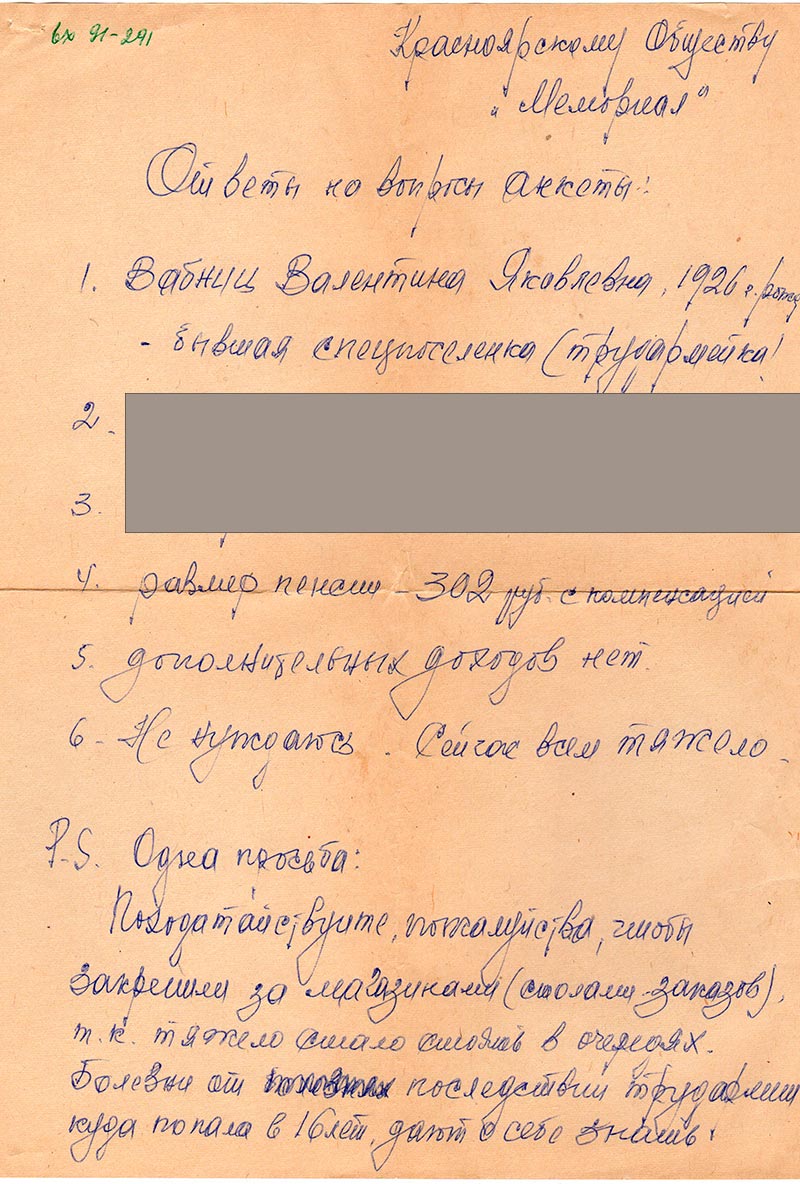 вх 91-291
Красноярскому Обществу
"Мемориал"
Ответы на вопросы анкеты:
1. Вабниц Валентина Яковлевна, 1926 г. рожд
- бывшая спецпоселенка (трудармейка)
2.
3.
4. размер пенсии - 302 руб. с компенсацией
5. дополнительных доходов нет.
6 - Не нуждаюсь. Сейчас всем тяжело.
P.S. Одна просьба:
Походатайствуйте, пожалуйста, чтобы
закрепили за магазинами (столами-заказов),
т.к. тяжело стало стоять в очередях.
Болезни от последствий трудармии
куда попала в 16 лет, дают о себе знать.